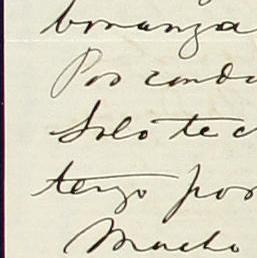 bonanza
Por condu
Solo te c
tengo por
Mucho